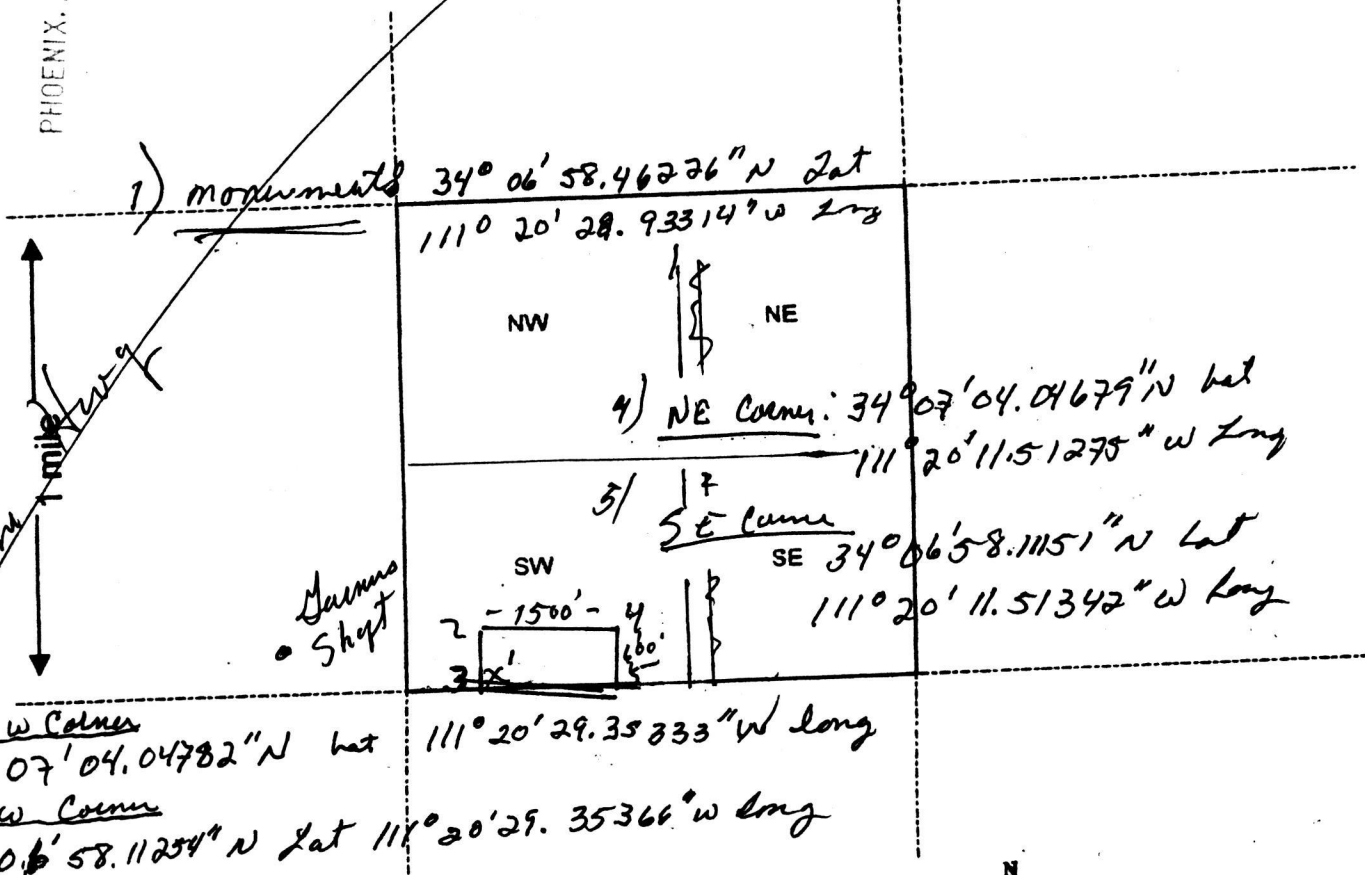 PHOENIX.
1) monuments 34° 06' 58.46226" N Lat
111° 20' 28.93314" W Long
NW
NE
1 mile
4) NE Corner: 34° 07' 04.04679" N Lat
111° 20' 11.51275" W Long
5/
SE Corner
SW
SE
34° 06' 58.11151" N Lat
111° 20' 11.51342" W Long
Shaft
- 1500' -
2
4
600'
3
X
1
5
W Corner
07' 04.04782" N Lat 111° 20' 29.35333" W long
W Corner
58.11254" N Lat 111° 20' 29.35366" W long
N